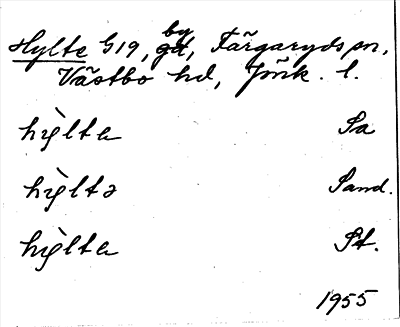 Hylte G19, by gd, Färgaryds sn,
Västbo hd, Jönk. l.
hỳlta Sa
hỳltə Sand.
hỳlta St.
1955